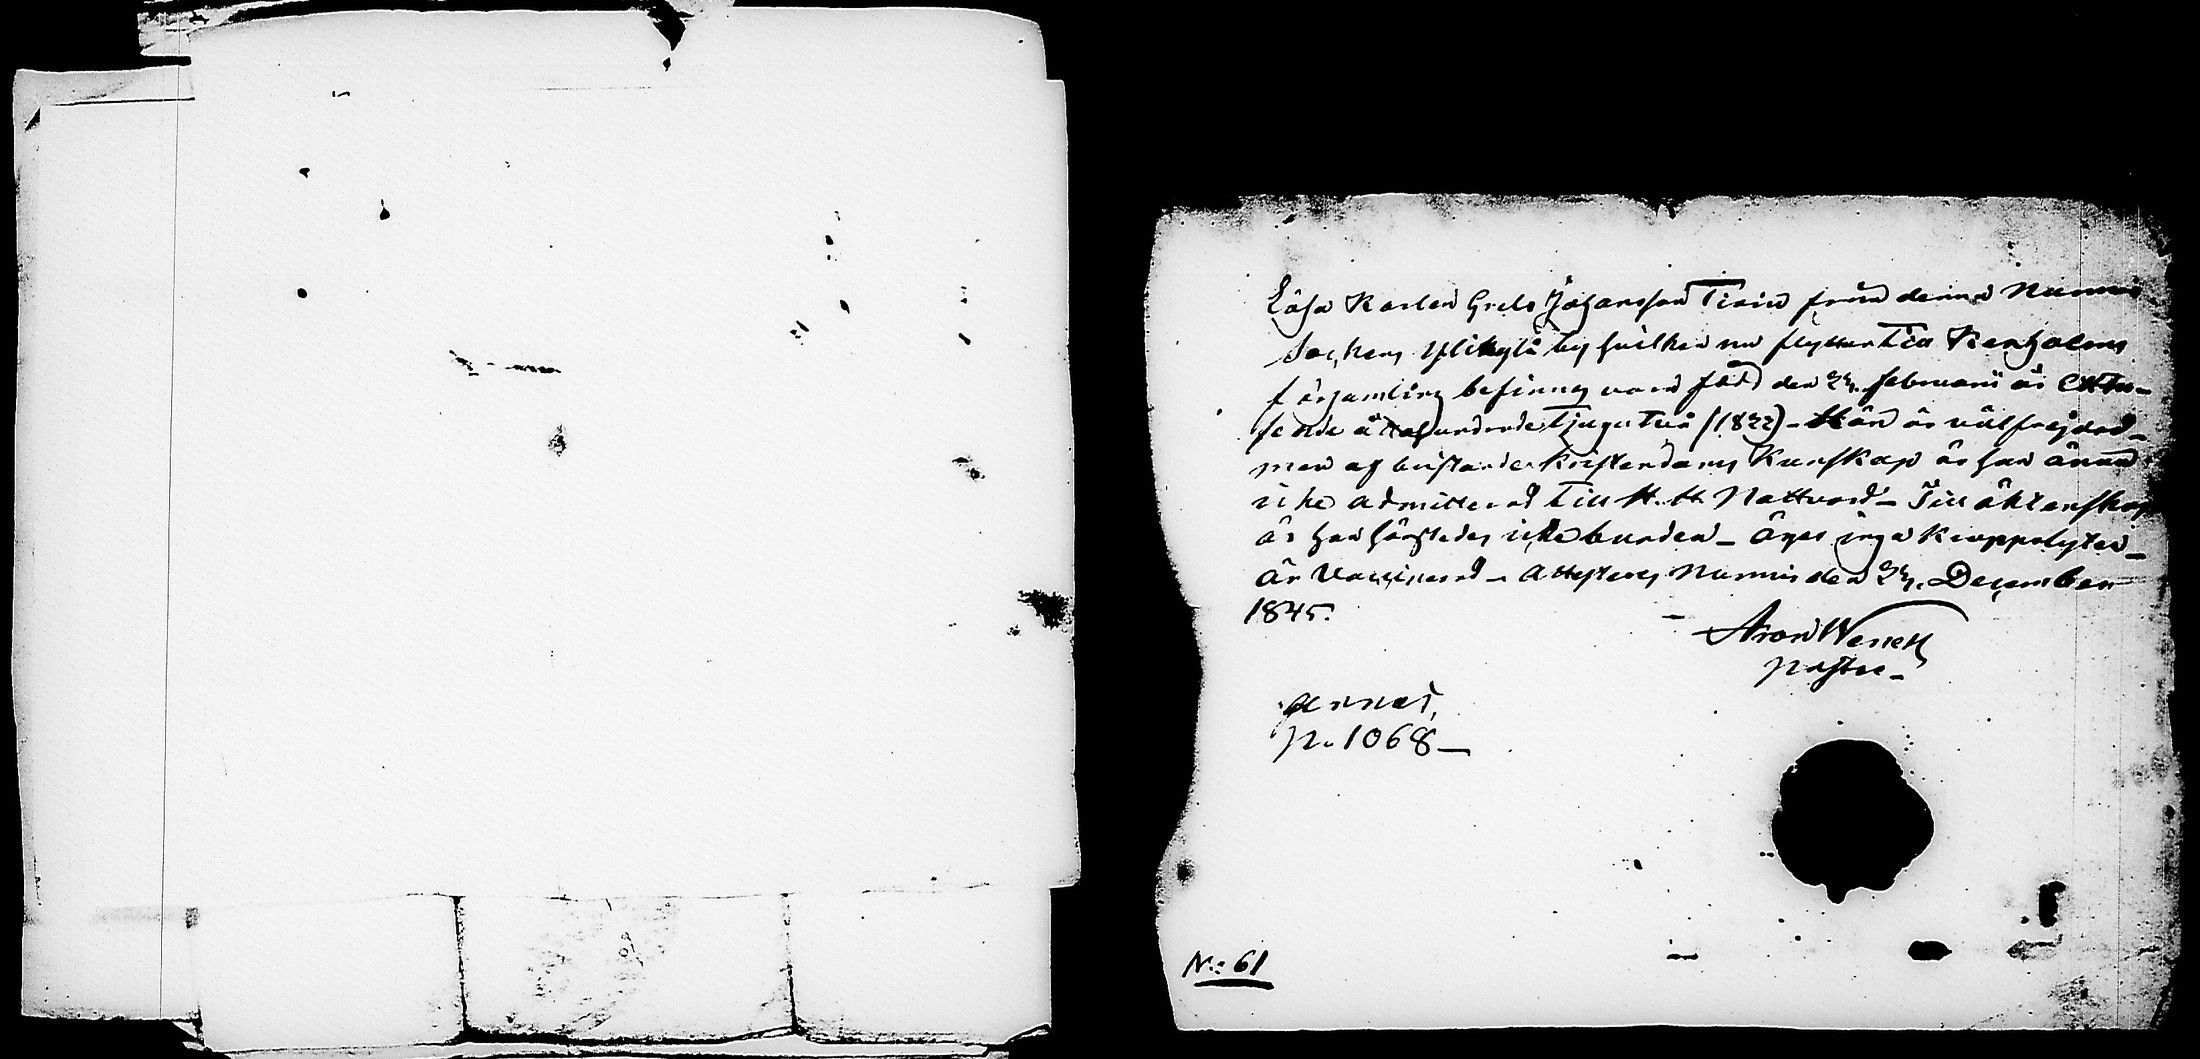 Lösa Karlen Grels Johansson Tiain från denna Nummis
Sockens Ylikylä by hvilken nu flyttar till Rerholms
församling befinnes vara född den 24. februarii år Ettu-
sende åttahundrade Tjugu Två (1822) – Han är välfrejdad –
men af bristande Kristendoms Kunskap är han ännu
icke admitterad till H. H. Nattvard – Till äktenskap
är han härstedes icke bunden – äger inga kroppslyten –
är Vaccinerad – Attesteras Nummis den 24. December
1845.
Aron Wenell
pastor –
annot,
p. 1068 –
N:o 61